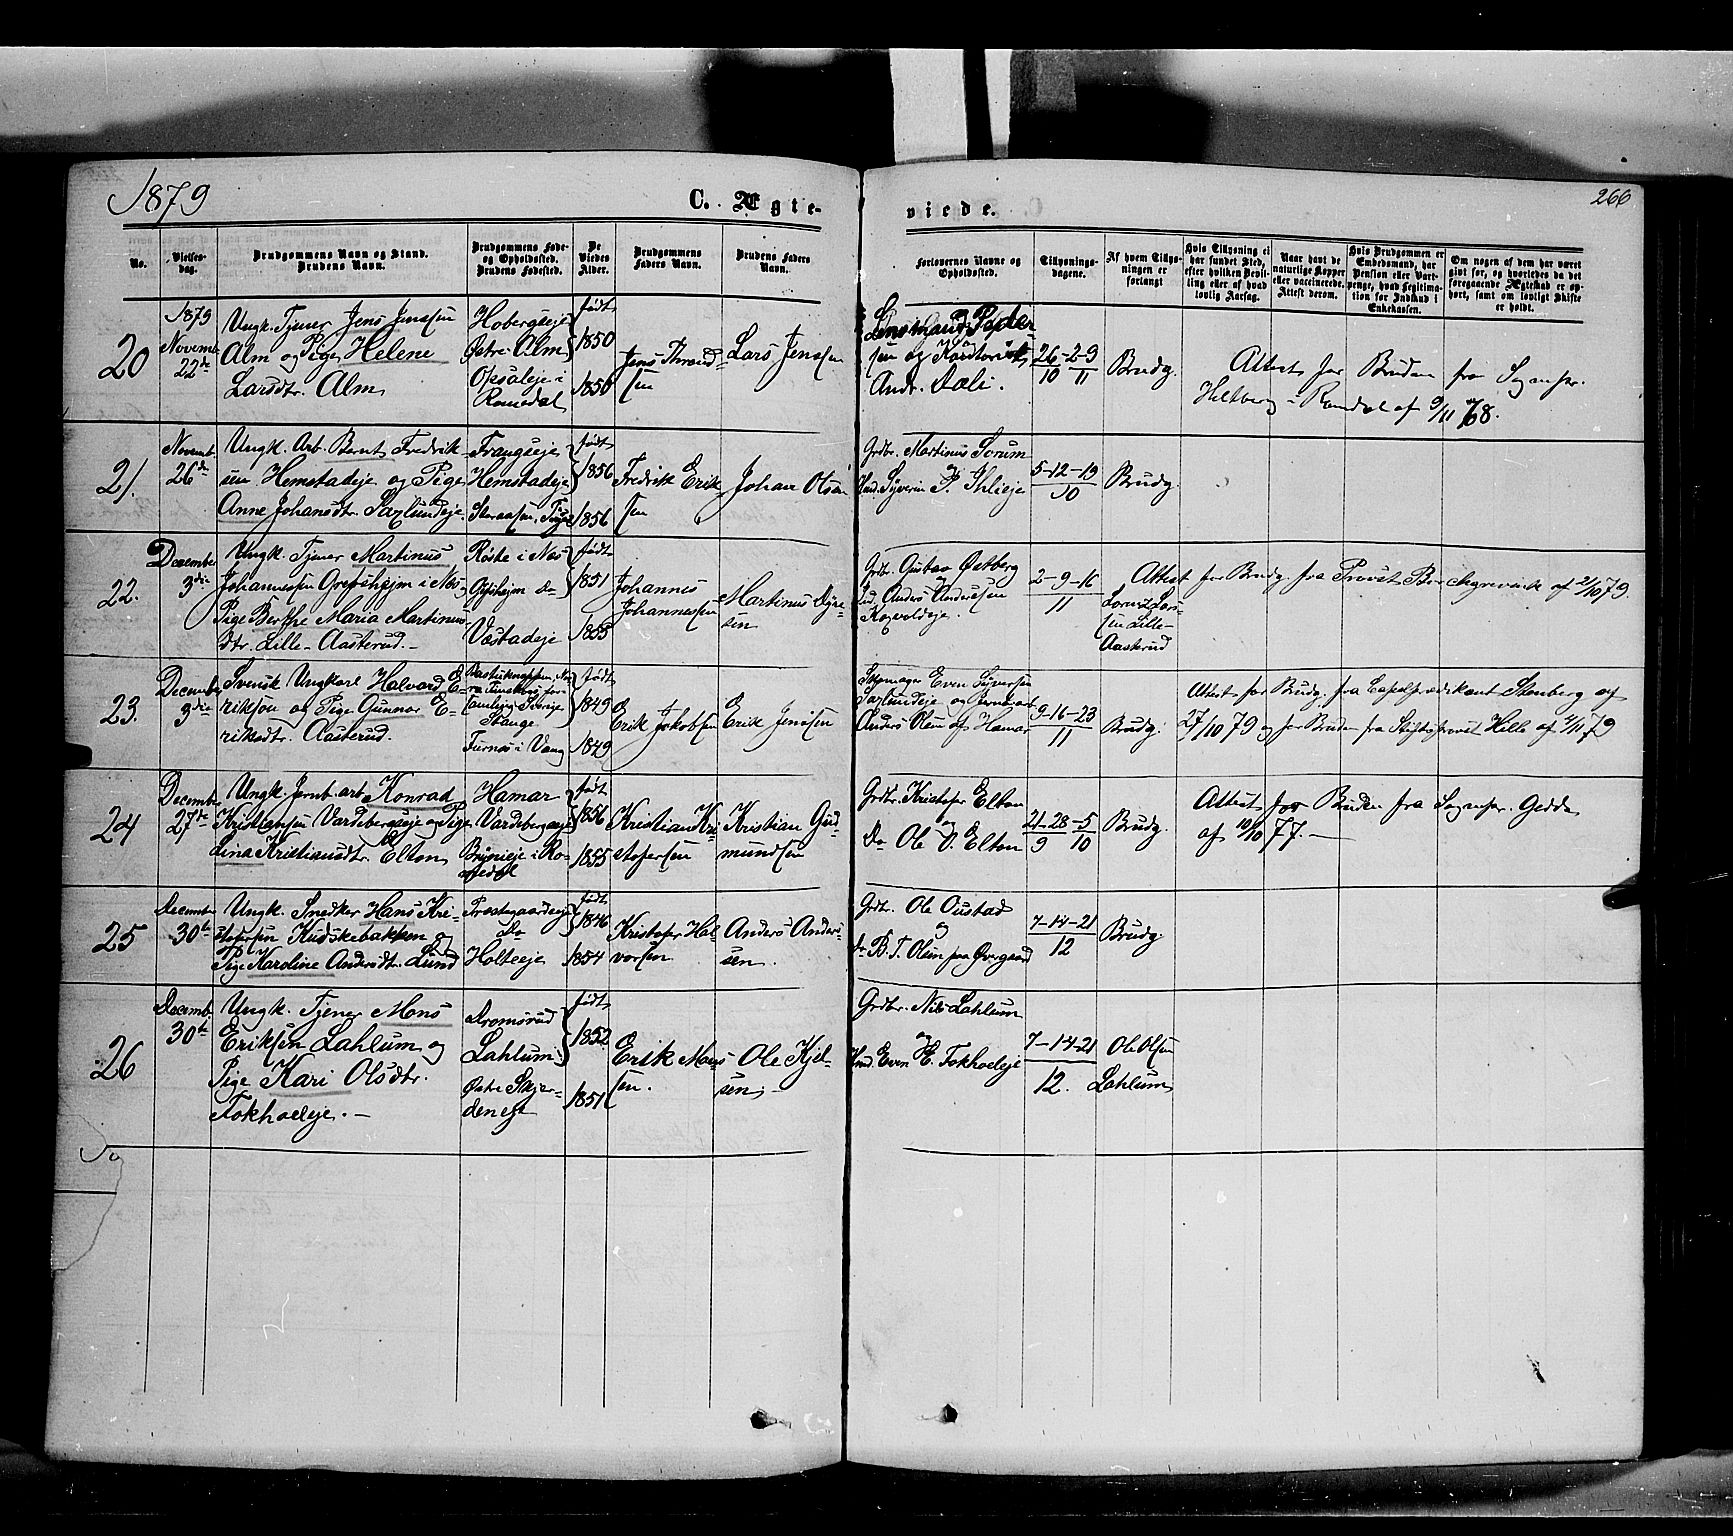 1879
C. Ægte-
viede.
266
No.
Vielses-
dag.
Brudgommens Navn og Stand.
Brudens Navn.
Brudgommens Føde-
og Opholdssted.
Brudens Fødested.
De
Viedes
Alder.
Brudgommens
Faders Navn.
Brudens Faders
Navn.
Forlovernes Navne og
Opholdssted.
Tillysnings-
dagene.
Af hvem Tillys-
ningen er
forlangt
Hvis Tillysning ei
har fundet Sted,
efter hvilken Bevil-
ling eller af hvad
lovlig Aarsag.
Naar havt de
naturlige Kopper
eller vaccinerede.
Attest derom.
Hvis Brudgommen er
Embedsmand, har
Pension eller Vart-
penge, hvad Legitima-
tion for Indskud i
Enkekassen.
Om nogen af dem har været
gift før, og hvorledes da det
foregaaende Ægteskab er op-
hørt, samt om lovligt Skifte
er holdt.
20
1879
Novemb.
22de
Ungk. Tjener Jens Jensen
Alm og Pige Helene
Larsdtr. Alm
Hobergseje
Østre Alm
Opsaleje i
Romedal
født
1850
1850
Jens Thrond-
sen
Lars Jensen
Lensmand Peder
sen og Kontorist
Andr. Dæli.
26-2-9
10 11
Brudg.
Attest for Bruden fra Sognepr.
Heltberg i Romdal af 9/11 78.
21.
Novemb.
26de
Ungk. Arb. Bernt Fredrik-
sen Hemstadeje og Pige
Anne Johansdtr. Saxlundeje.
Frangseje
Hemstadeje
født
1856
1856
Fredrik Erik-
sen
Johan Olsen
Grdbr. Martinus Sørum
og
Hmd. Syverin P. Ihleeje
5-12-19
10
Brudg.
22.
December
3die
Ungk. Tjener Martinus
Johannessen Grefsheim i Næs
Pige Berthe Maria Martinus-
dtr. Lille-Aasterud.-
Røste i Næs
Do
Væstadeje
født
1851
1855
Johannes
Johannessen
Martinus
sen
Grdbr. Gustav Østberg
og
Anders Andersen
2-9-16
11
Lorentz Lars-
sen Lille-
Aasterud
Attest for Brudg. fra Provst Borchgrevink af 21/10 79.
23.
December
3die
Svensk Ungkarl Halvard E-
rikson og Pige Gunnor E-
riksdtr. Aasterud.
Sverige
Stange
Furnæs i Vang
født
1849
1849
Erik Jakobsen
Erik Jensen
Skomager Even Syversen
Saxlundeje og
Anders Rem af Hamar
9-16-23
11
Brudg.
Attest for Brudg. fra Capelprædikant Stenberg af
27/10 79 og for Bruden fra Stiftsprovst Hille af 7/11 79
24
December
27de
Ungk. Jernb. arb. Konrad
Kristiansen Vardebergseje og Pige
Lina Kristiansdtr. Elton
Hamar
Vardebergseje
Brynieje i Ro-
medal
født
1856
1855
Kristian Kri-
stofersen
Kristian Gud-
mundsen
Grdbr. Kristofer Elton
og
Do Ole O. Elton
21-28-5
9 10
Brudg.
Attest for Bruden fra Sognepr. Gedde
af 10/10 77.-
25
December
30te
Ungk. Snedker Hans Kri-
stofersen Kudskebakken og
Pige Karoline Andersdtr. Lund
Præstegaardseje
Do
Holteeje
født
1846
1854
Kristofer Hal-
vorsen
Anders Anders-
sen.
Grdbr. Ole Oustad
og
do B. T. Olsen paa Øvergaard
7-14-21
12
Brudg.
26
Decemb.
30te
Ungk. Tjener Mons
Eriksen Lahlum og
Pige Kari Olsdtr.
Fokhoeleje.-
Dromsrud
Lahlum
Østre Skjer-
denegt
født
1852
1851
Erik Mons-
sen.
Ole Kjel-
sen.
Grdbr. Nils Lahlum
og
Hmd. Even H. Fokhoeleje
7-14-21
12.
Ole Olsen
Lahlum